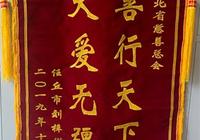 北省慈善总会
善行天下
大爱无疆
任丘市刘梓
二〇一九年十